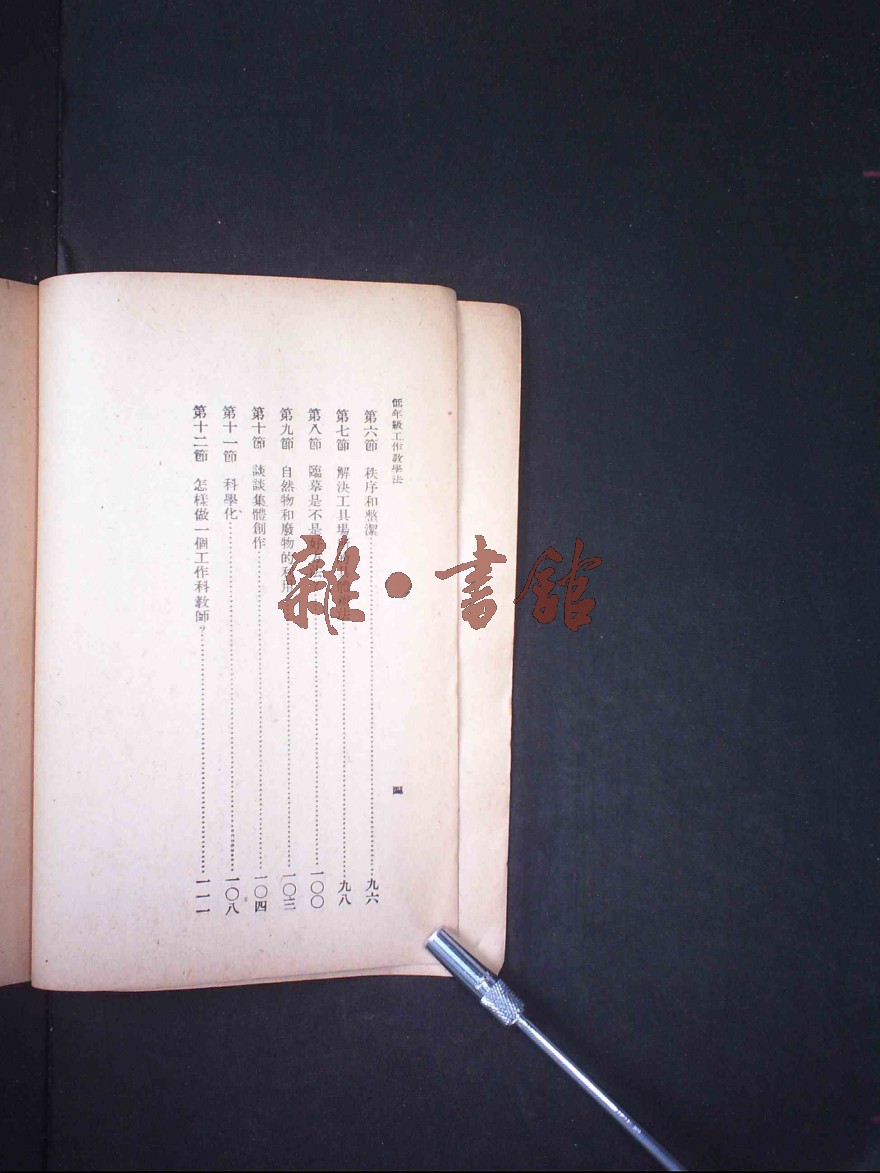 低年級工作教學法
四
第六節 秩序和整潔……九六
第七節 解決工具場……九八
第八節 臨摹是不是好……一〇〇
第九節 自然物和廢物的利用……一〇三
第十節 談談集體創作……一〇四
第十一節 科學化……一〇八
第十二節 怎樣做一個工作科教師?……一一一
雜·書館